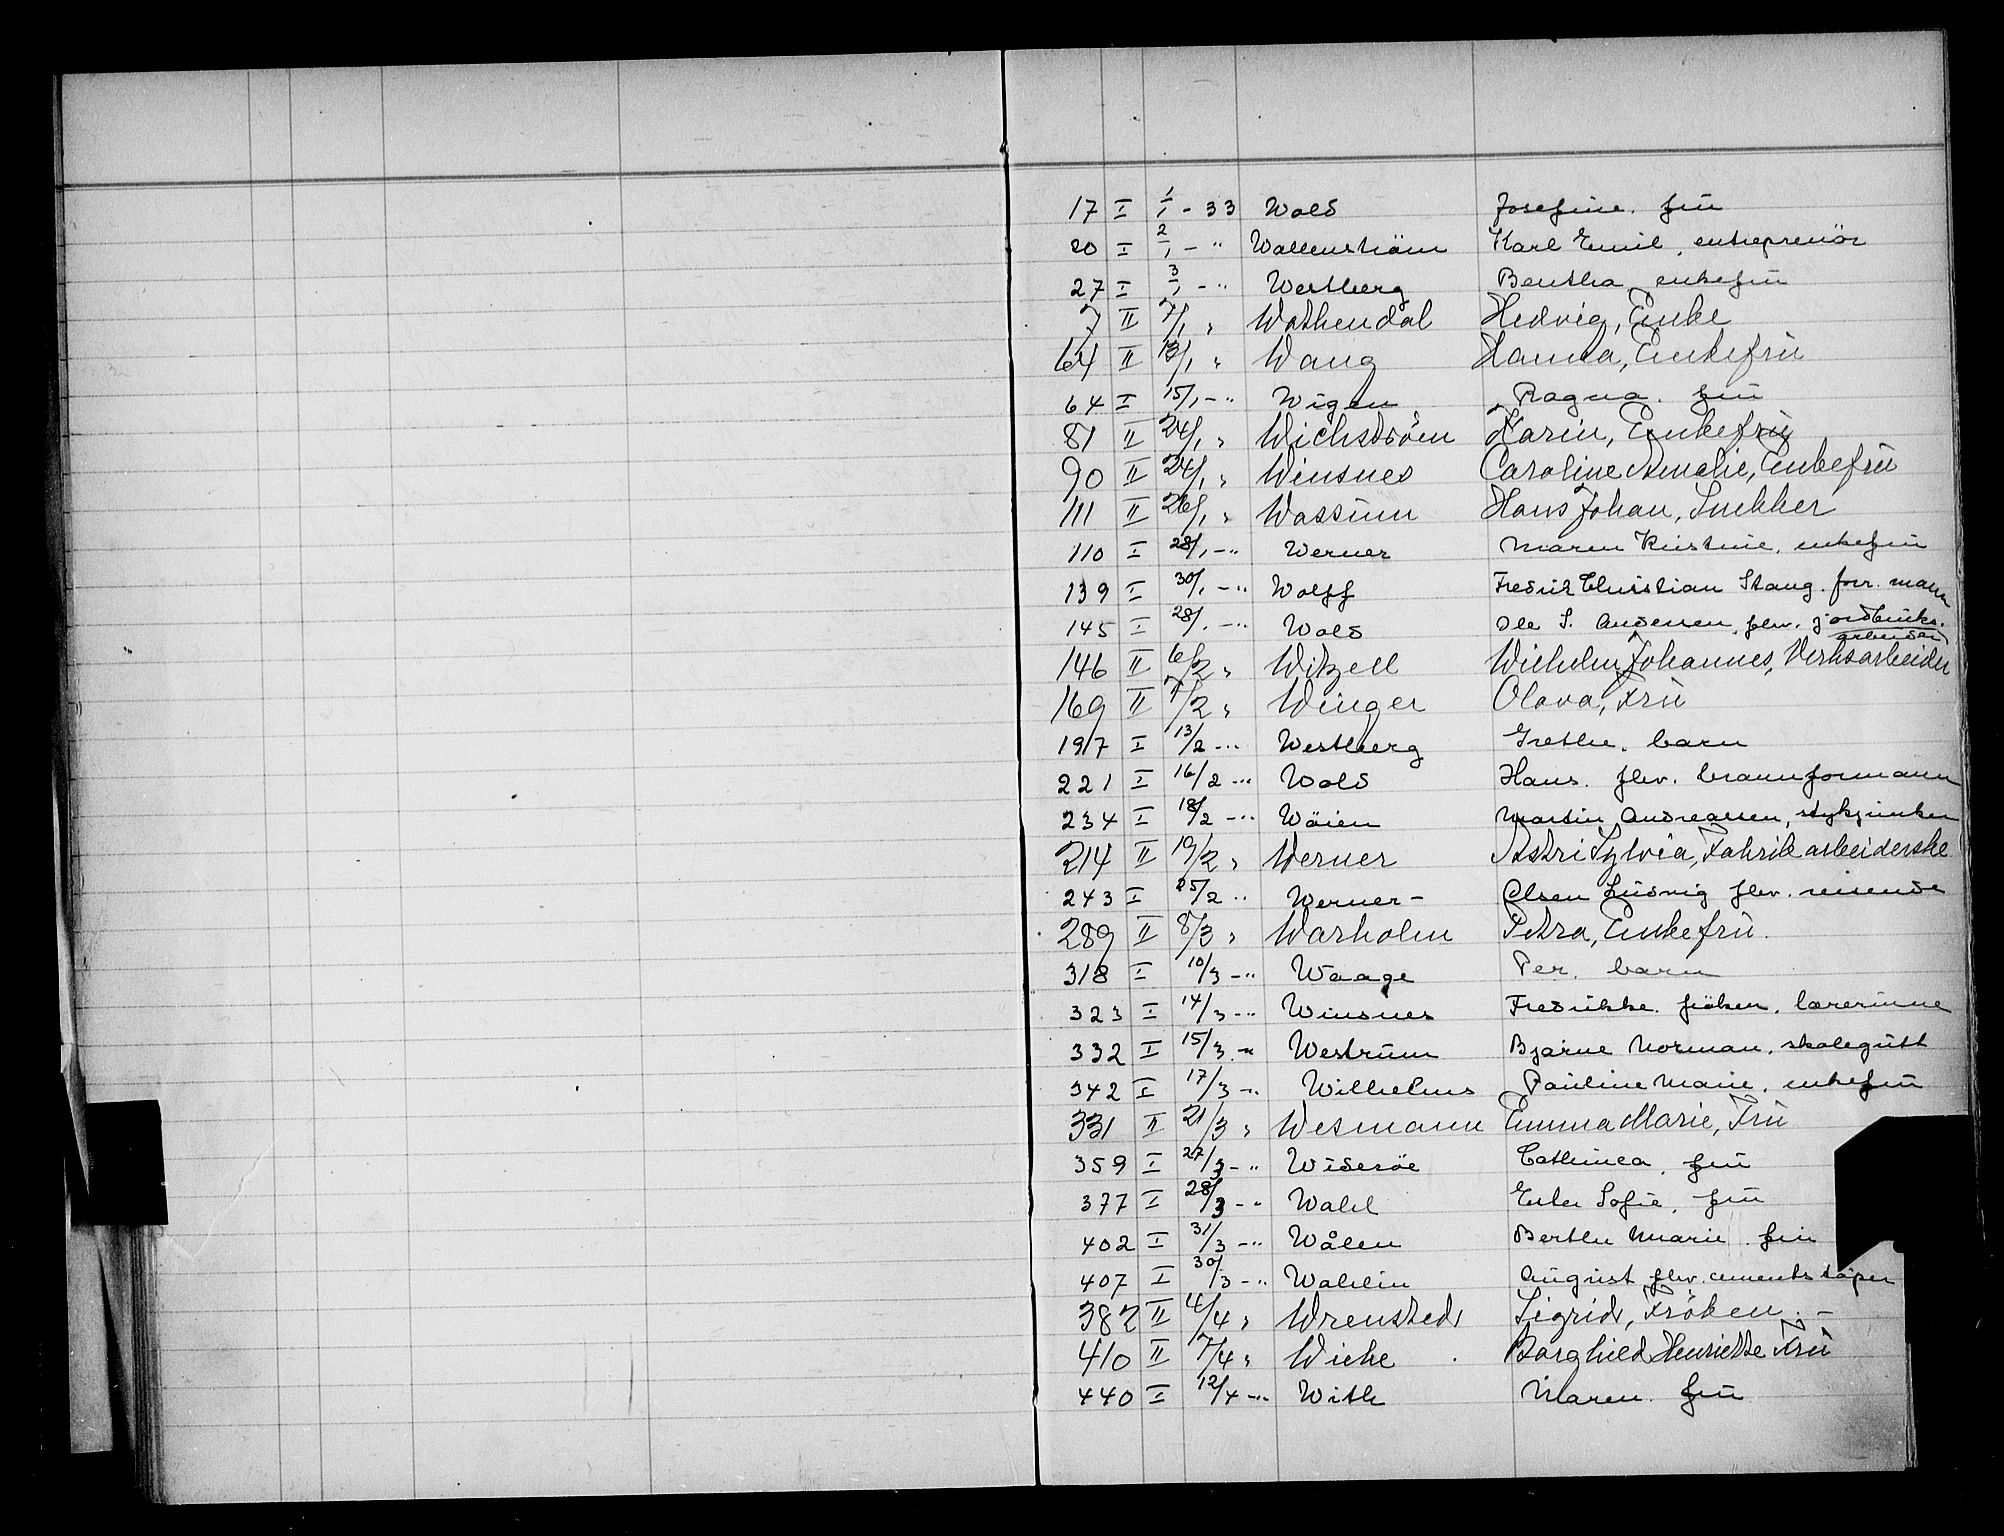 17 I 1/1 - 33 Wold Josefine. frü
20 I 2/1 - " Wallenström Karl Emil, entreprenör
27 I 3/1 - " Westberg Bentha, enkefrü
7 II 7/1 " Wathendal Hedvig, Enke
64 II 13/1 " Wang Hanna, Enkefrü
64 I 15/1 - " Wigen Ragna. frü
81 II 24/1 " Wichström Karin, Enkefrü
90 II 24/1 " Winsnes Caroline Amalie, Enkefrü
111 II 26/1 " Wassüm Hans Johan, Snekker
110 I 28/1 - " Werner Maren Kristine, enkefrü
139 I 30/1 - " Wolff Fredrik Christian Stang. forr. mann
145 I 28/1 - " Wold Ole S. Andersen, fhv. jordbruks.
arbeider
146 II 6/2 " Witzell Wilhelm Johannes, Verksarbeider
169 II 7/2 " Winger Olava, Frü
197 I 13/2 - " Westberg Grethe. barn
221 I 16/2 - " Wold Hans. fhv. brannformann
234 I 18/2 - " Wöien Martin Andreassen, stykjunker
214 II 19/2 " Werner Astri Sylvia, Fabrikarbeiderske
243 I 25/2 " Werner- Olsen Lüdvig fhv. reisende
289 II 8/3 " Warholm Petra, Enkefrü.
318 I 10/3 - " Waage Per. barn
323 I 14/3 - " Winsnes Fredrikke. fröken. lærerinne
332 I 15/3 - " Westrüm Bjarne Norman. skolegütt
342 I 17/3 - " Wilhelms Pauline Marie. enkefrü
331 II 21/3 " Wesmann Emma Marie, Frü
359 I 27/3 - " Wideröe Cathinca, frü
377 I 28/3 - " Wahl Ester Sofie, frü
402 I 31/3 - " Wålen Berthe Marie. frü
407 I 30/3 - " Wahlin Aügüst fhv. cementstöper
382 II 4/4 " Wrensted Sigrid, Fröken. -
410 II 7/4 " Wiche Borghild Henriette Frü
440 I 12/4 - " With Maren. frü